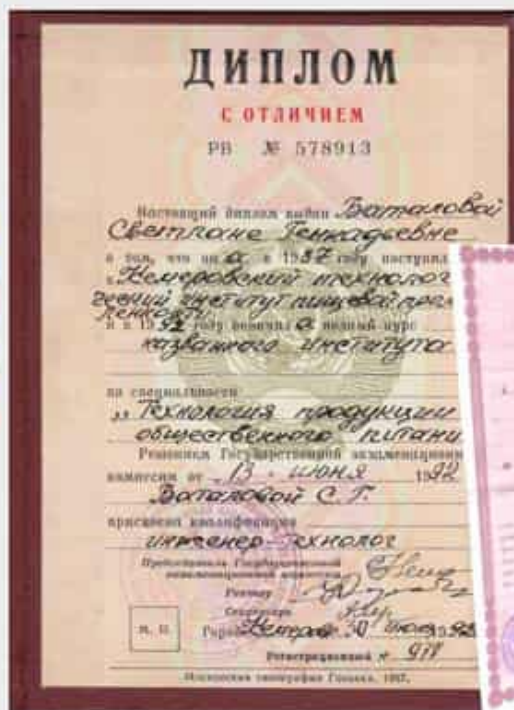 ДИПЛОМ
С ОТЛИЧИЕМ
РВ № 578913
Настоящий диплом выдан Баталовой
Светлане Геннадьевне
в том, что он а в 1987 году поступил
в Кемеровский технолог
ический институт пищевой про
ленности
и в 1992 году окончил а полный курс
названного института
по специальности
„Технология продукции
общественного питани
Решением Государственной экзаменационн
комиссии от „13" июня 1992
Баталовой С.Г.
присвоена квалификация
инженер-технолог
Председатель Государственной
экзаменационной комиссии
Ректор
Секретарь
М. П. Город Кемерово 30 июня 1992
Регистрационный № 911
Московская типография Гознака. 1987.